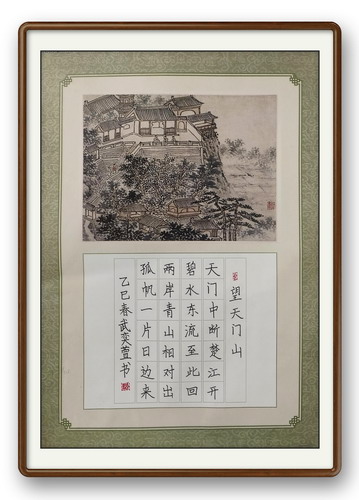 望天门山
天门中断楚江开
碧水东流至此回
两岸青山相对出
孤帆一片日边来
乙巳春武奕萱书